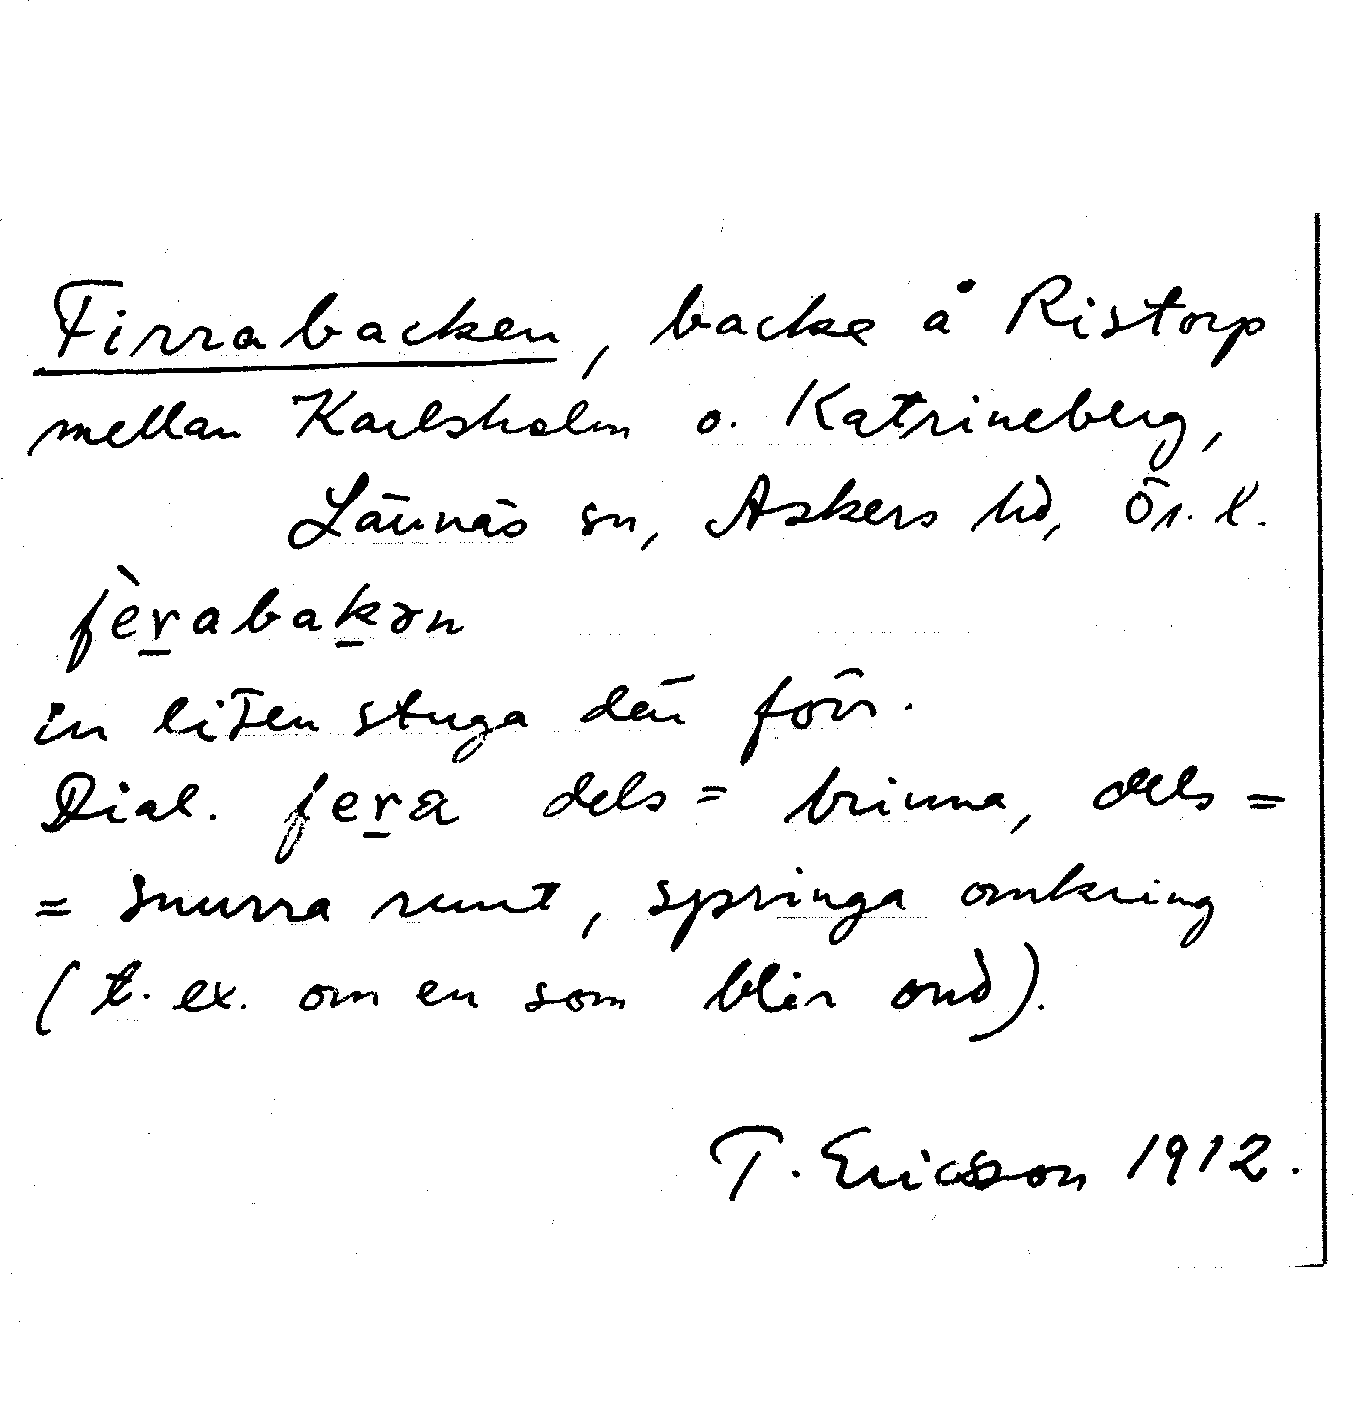 Firrabacken, backe å Ristorp
mellan Karlsholm o. Katrineberg,
Lännäs sn, Askers hd, Ör. l.
fèr̲abak̲ən
in liten stuga där förr.
Dial. fer̲a dels = brinna, dels =
= snurra runt, springa omkring
(t. ex. om en som blir ond).
T. Ericsson 1912.